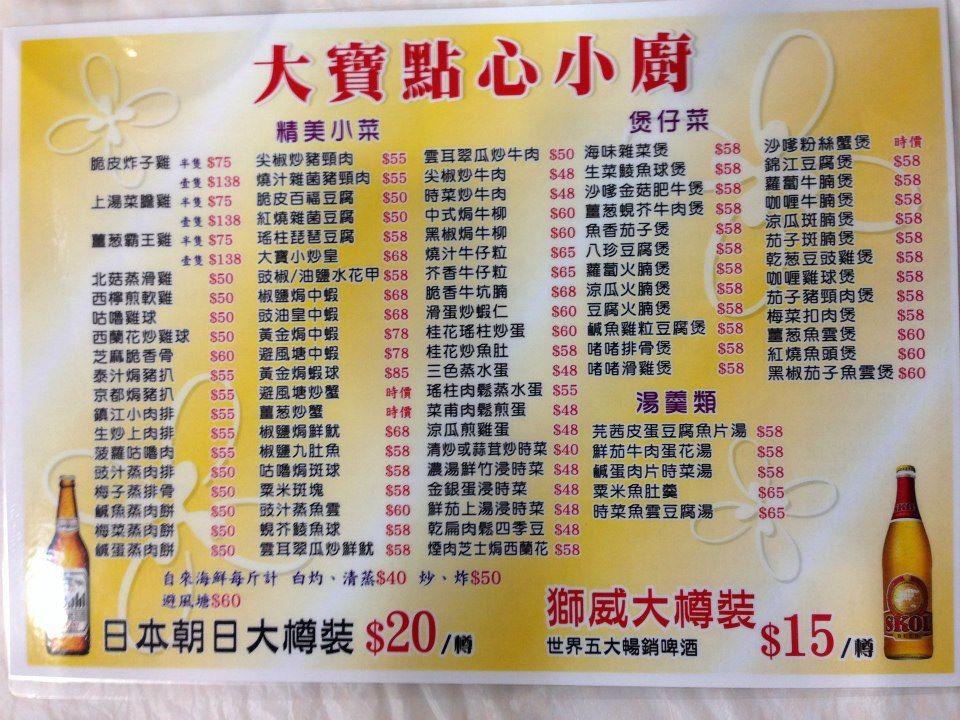 大寶點心小廚
精美小菜
脆皮炸子雞 半隻 $75
壹隻 $138
上湯菜膽雞 半隻 $75
壹隻 $138
薑葱霸王雞 半隻 $75
壹隻 $138
北菇蒸滑雞 $50
西檸煎軟雞 $50
咕嚕雞球 $50
西蘭花炒雞球 $50
芝麻脆香骨 $60
泰汁焗豬扒 $55
京都焗豬扒 $55
鎮江小肉排 $55
生炒上肉排 $55
菠蘿咕嚕肉 $55
豉汁蒸肉排 $50
梅子蒸排骨 $50
鹹魚蒸肉餅 $50
梅菜蒸肉餅 $50
鹹蛋蒸肉餅 $50
尖椒炒豬頸肉 $55
燒汁雜菌豬頸肉 $55
脆皮百福豆腐 $50
紅燒雜菌豆腐 $50
瑤柱琵琶豆腐 $58
大寶小炒皇 $68
豉椒/油鹽水花甲 $58
椒鹽焗中蝦 $68
豉油皇中蝦 $68
黃金焗中蝦 $78
避風塘中蝦 $78
黃金焗蝦球 $85
避風塘炒蟹 時價
薑葱炒蟹 時價
椒鹽焗鮮魷 $68
椒鹽九肚魚 $58
咕嚕焗斑球 $58
粟米斑塊 $58
豉汁蒸魚雲 $60
蜆芥鯪魚球 $58
雲耳翠瓜炒鮮魷 $58
雲耳翠瓜炒牛肉 $50
尖椒炒牛肉 $48
時菜炒牛肉 $48
中式焗牛柳 $60
黑椒焗牛柳 $60
燒汁牛仔粒 $65
芥香牛仔粒 $65
脆香牛坑腩 $58
滑蛋炒蝦仁 $60
桂花瑤柱炒蛋 $60
桂花炒魚肚 $58
三色蒸水蛋 $48
瑤柱肉鬆蒸水蛋 $55
菜甫肉鬆煎蛋 $48
涼瓜煎雞蛋 $48
清炒或蒜茸炒時菜 $40
濃湯鮮竹浸時菜 $48
金銀蛋浸時菜 $48
鮮茄上湯浸時菜 $48
乾扁肉鬆四季豆 $48
煙肉芝士焗西蘭花 $58
煲仔菜
海味雜菜煲 $58
生菜鯪魚球煲 $58
沙嗲金菇肥牛煲 $58
薑葱蜆芥牛肉煲 $58
魚香茄子煲 $58
八珍豆腐煲 $58
蘿蔔火腩煲 $58
涼瓜火腩煲 $58
豆腐火腩煲 $58
鹹魚雞粒豆腐煲 $58
啫啫排骨煲 $58
啫啫滑雞煲 $58
沙嗲粉絲蟹煲 時價
錦江豆腐煲 $58
蘿蔔牛腩煲 $58
咖喱牛腩煲 $58
涼瓜斑腩煲 $58
茄子斑腩煲 $58
乾葱豆豉雞煲 $58
咖喱雞球煲 $58
茄子豬頸肉煲 $58
梅菜扣肉煲 $58
薑葱魚雲煲 $60
紅燒魚頭煲 $60
黑椒茄子魚雲煲 $60
湯羹類
芫茜皮蛋豆腐魚片湯 $58
鮮茄牛肉蛋花湯 $58
鹹蛋肉片時菜湯 $58
粟米魚肚羹 $65
時菜魚雲豆腐湯 $65
自來海鮮每斤計 白灼、清蒸$40 炒、炸$50
避風塘$60
日本朝日大樽裝 $20/樽
獅威大樽裝
世界五大暢銷啤酒 $15/樽
Asahi
SKOL